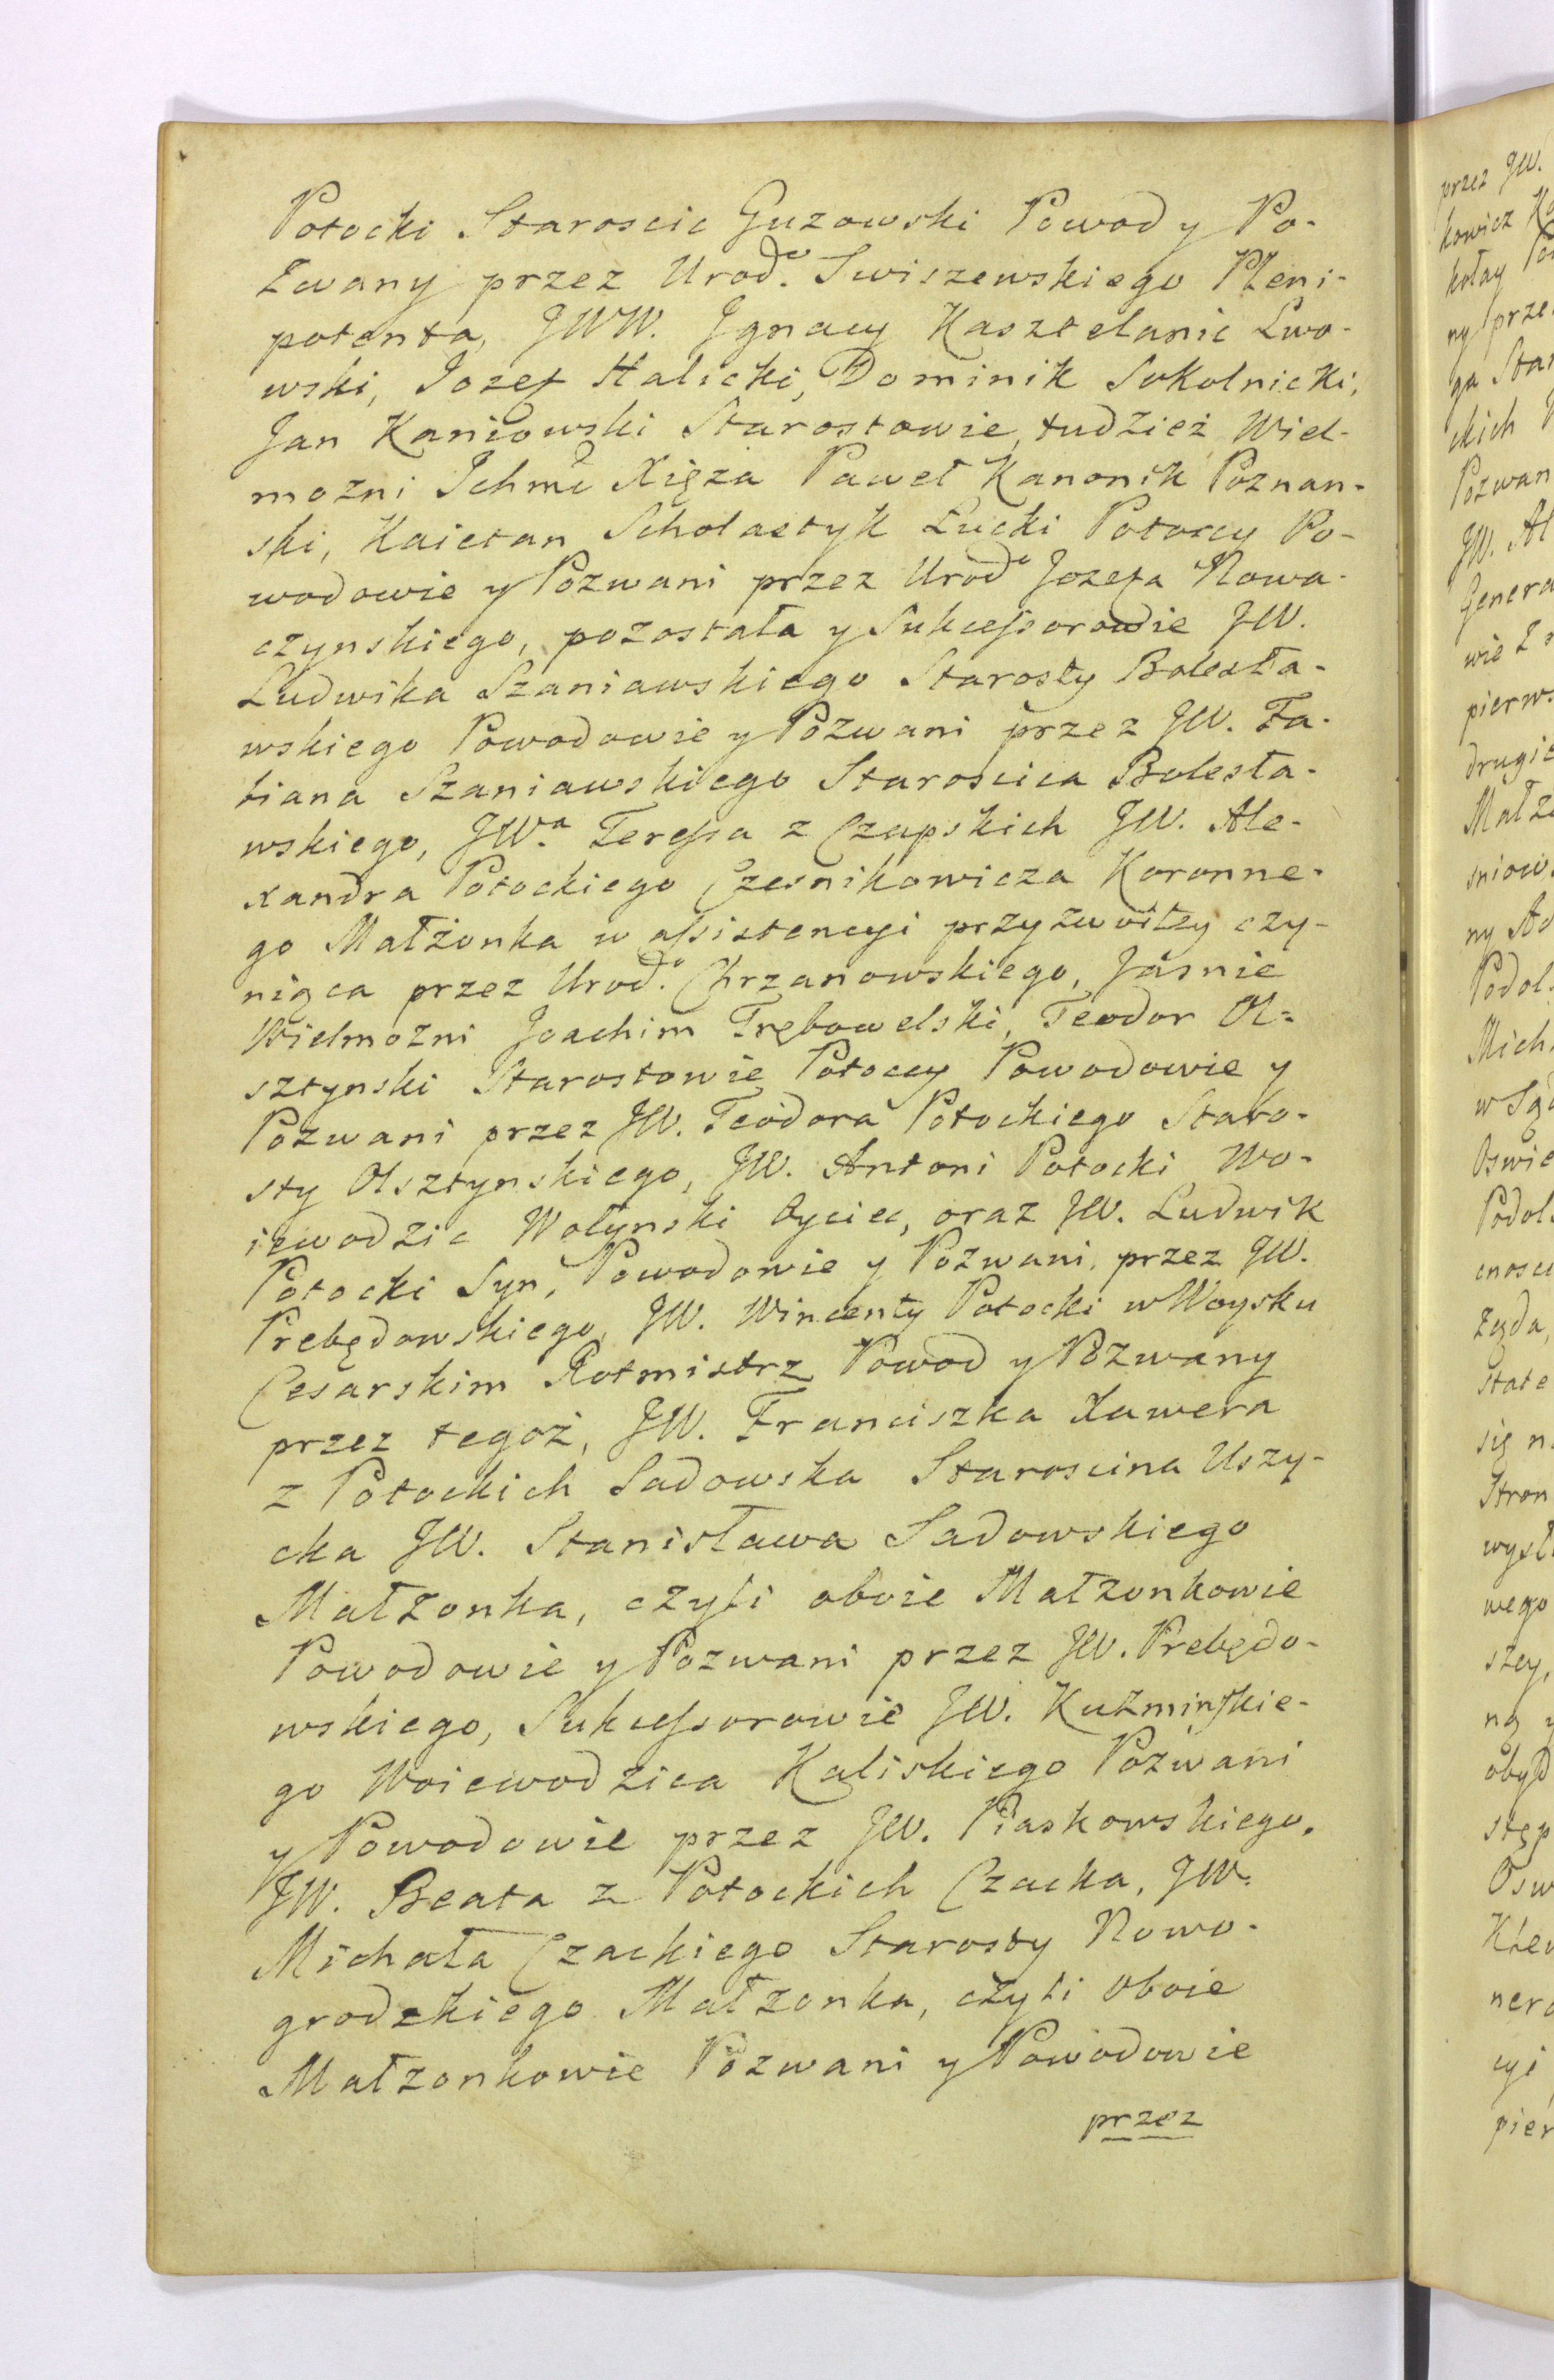 Potocki Staroscic Guzowski Powod y Po-
zwany przez Urod.º Swiszewskiego Pleni-
potenta, JWW. Jgnacy Kasztelanic Lwo-
wski, Jozef Halicki, Dominik Sokolnicki,
Jan Kaniowski Starostowie, tudzież Wiel-
mozni Jchmć Xięża Paweł Kanonik Poznan-
ski, Kaietan Scholastyk Łucki Potoccy Po-
wodowie y Pozwani przez Urodº Jozefa Nowa-
czynskiego, pozostała y Sukcessorowie JW.
Ludwika Szaniawskiego Starosty Bolesła-
wskiego Powodowie y Pozwani przez JW. Fa-
biana Szaniawskiego Staroscica Bolesła-
wskiego, JW.ª Teressa z Czapskich JW. Ale-
xandra Potockiego Czesnikowicza Koronne-
go Małżonka w assistencyi przyzwoitey czy-
niąca przez Urod.º Chrzanowskiego, Jaśnie
Wielmozni Joachim Trębowelski, Teodor Ol-
sztynski Starostowie Potoccy Powodowie y
Pozwani przez JW. Teodora Potockiego Staro-
sty Olsztynskiego, JW. Antoni Potocki Wo-
iewodzic Wołynski Oyciec, oraz JW. Ludwik
Potocki Syn, Powodowie y Pozwani, przez JW.
Prebędowskiego, JW. Wincenty Potocki w Woysku
Cesarskim Rotmistrz Powod y Pozwany
przez tegoż, JW. Franciszka Xawera
z Potockich Sadowska Staroscina Uszy-
cka JW. Stanisława Sadowskiego
Małzonka, czyli oboie Małzonkowie
Powodowie y Pozwani przez JW. Prebędo-
wskiego, Sukcessorowie JW. Kuźminskie-
go Woiewodzica Kaliskiego Pozwani
y Powodowie przez JW. Piaskowskiego,
JW. Beata z Potockich Czacka, JW.
Michała Czackiego Starosty Nowo-
grodzkiego Małzonka, czyli Oboie
Małzonkowie Pozwani y Powodowie
przez
przez JW.
kowicz
kołay
ny prze
ga Star
ckich
Pozwan
JW. Al
Genera
wie
pierws
drugie
Małzo
sniow
ny
Podol
Mich
w Sąd
Oswie
Podol
cnosci
state
się n
Stron
wysł
wego
szey,
ną y
obyd
stęp
Osw
nera
cyi
pier